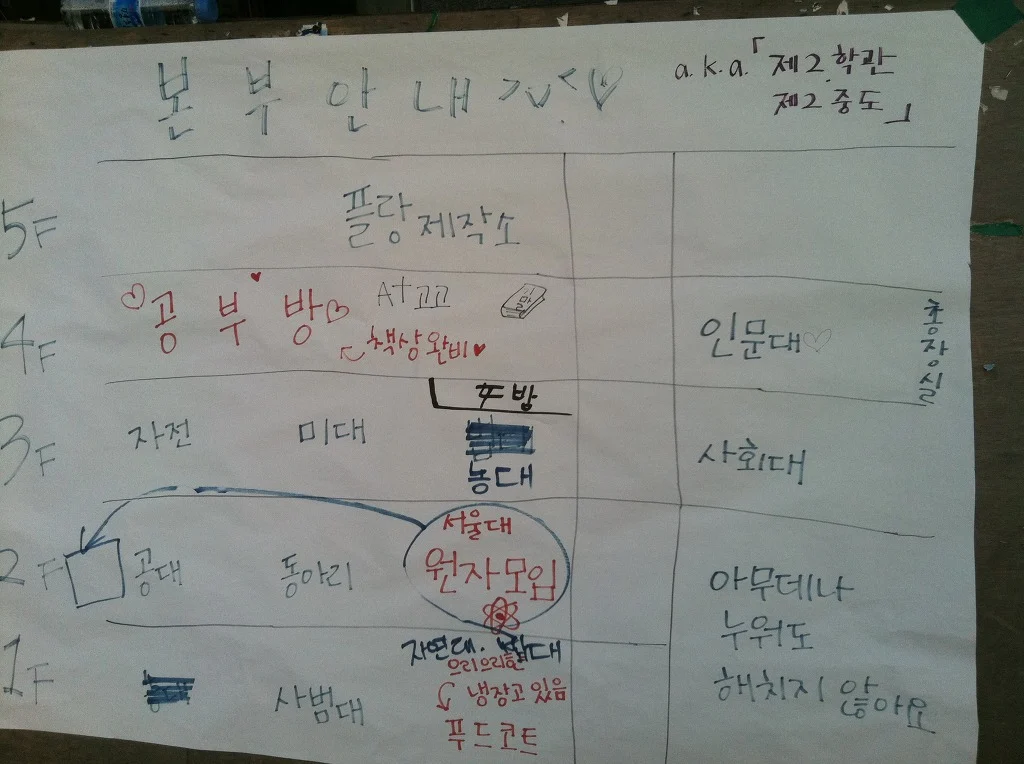 본부안내 >_< ♡
a.k.a.「제2학관
제2중도」
5F
플랑 제작소
4F
♡공 부 방♡
A+고고
책상완비♥
인문대♡
총장실
3F
자전
미대
농대
사회대
2F
공대
동아리
서울대
원자모임
아무데나
누워도
해치지 않아요
1F
사범대
자연대.
대
으리으리한
냉장고 있음
푸드코트